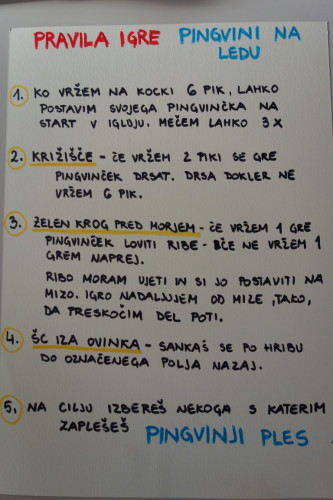 PRAVILA IGRE PINGVINI NA
LEDU
1. KO VRŽEM NA KOCKI 6 PIK, LAHKO
POSTAVIM SVOJEGA PINGVINČKA NA
START V IGLUJU. MEČEM LAHKO 3X
2. KRIŽIŠČE - ČE VRŽEM 2 PIKI SE GRE
PINGVINČEK DRSAT. DRSA DOKLER NE
VRŽEM 6 PIK.
3. ZELEN KROG PRED MORJEM - ČE VRŽEM 1 GRE
PINGVINČEK LOVITI RIBE - ČE NE VRŽEM 1
GREM NAPREJ.
RIBO MORAM UJETI IN SI JO POSTAVITI NA
MIZO. IGRO NADALJUJEM OD MIZE, TAKO,
DA PRESKOČIM DEL POTI.
4. ŠC IZA OVINKA - SANKAŠ SE PO HRIBU
DO OZNAČENEGA POLJA NAZAJ.
5. NA CILJU IZBEREŠ NEKOGA S KATERIM
ZAPLEŠEŠ PINGVINJI PLES